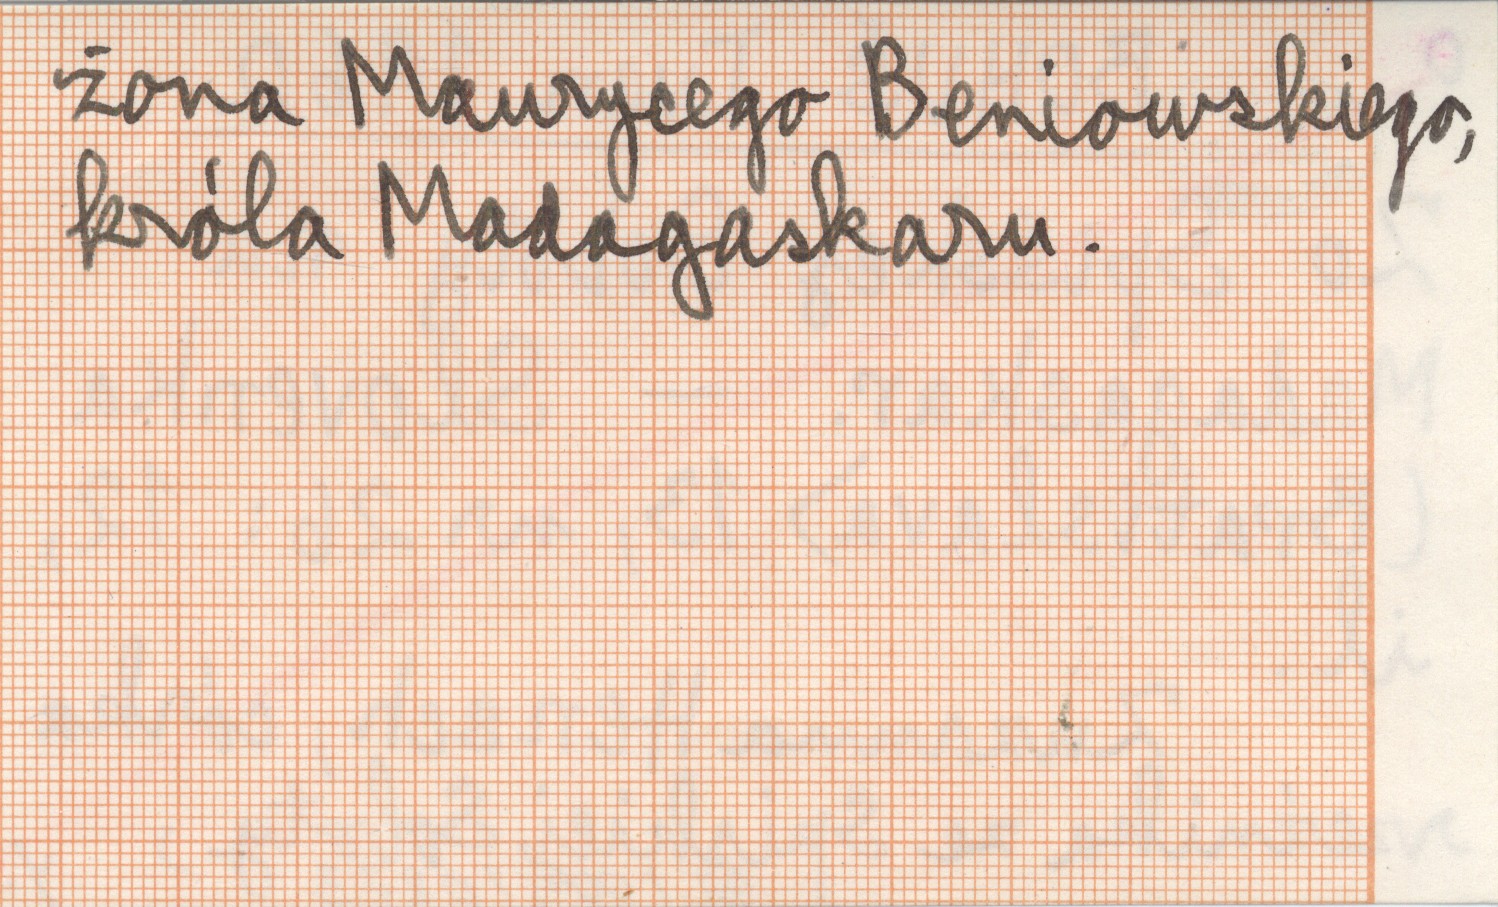 żona Maurycego Beniowskiego,
króla Madagaskaru.